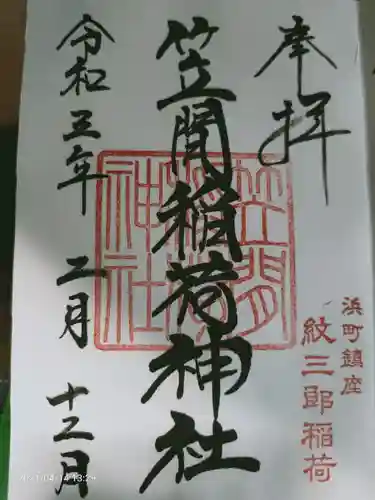 奉拝
浜町鎮座
紋三郎稲荷
笠間稲荷神社
笠間
稲荷
神社
令和五年 二月 十二日
04/14 13:29